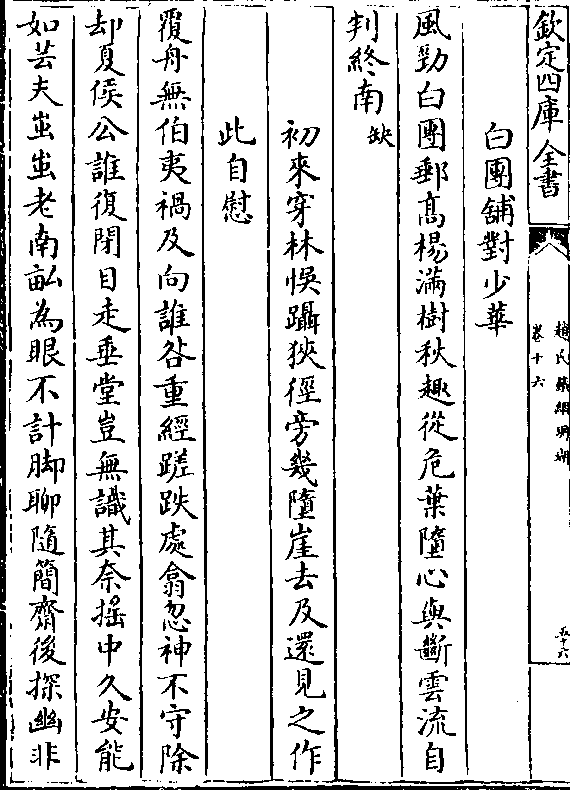 欽定四庫全書
趙氏鐵網珊瑚
卷十六
五十六
白團鋪對少華
風勁白團郵髙楊滿樹秋趣從危葉墮心與斷雲流自
判終南缺
初來穿林悞躡狹徑旁幾墮崖去及還見之作
此自慰
覆舟無伯夷禍及向誰咎重經蹉跌處翕忽神不守除
却夏侯公誰復閉目走垂堂豈無識其奈揺中久安能
如芸夫茁茁老南畝為眼不計脚聊隨簡齋後探幽非